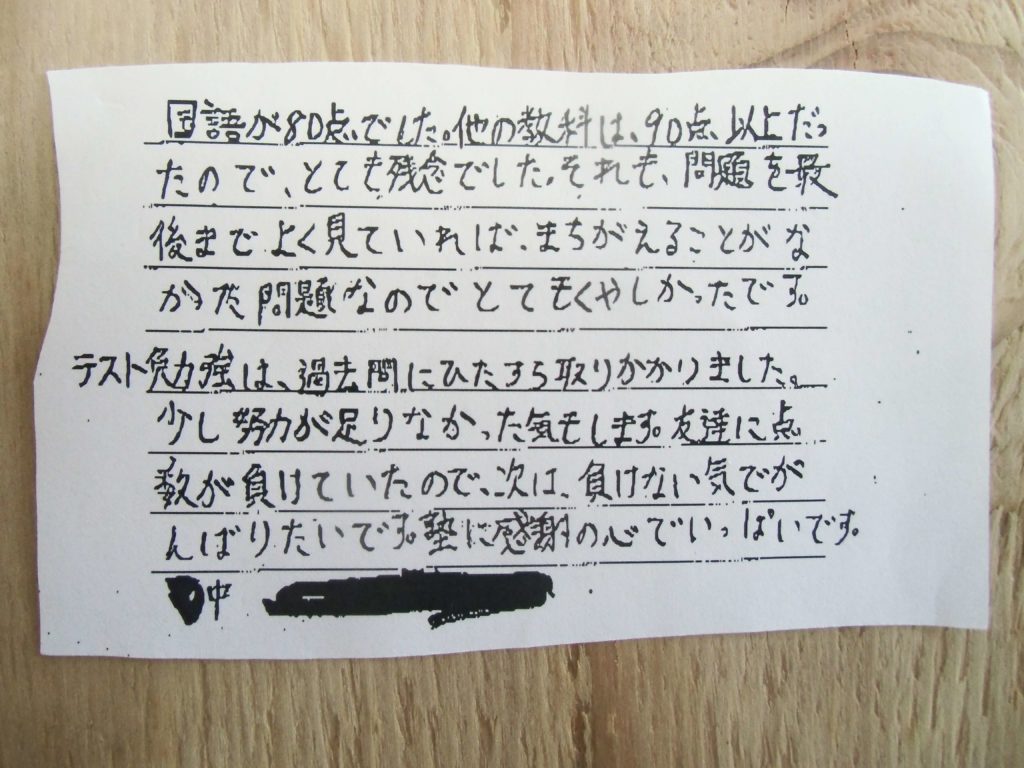 国語が80点でした。他の教科は、90点以上だっ
たので、とても残念でした。それも、問題を最
後までよく見ていれば、まちがえることがな
かった問題なのでとてもくやしかったです。
テスト勉強は、過去問にひたすら取りかかりました。
少し努力が足りなかった気もします。友達に点
数が負けていたので、次は、負けない気でが
んばりたいです。塾に感謝の心でいっぱいです。
中